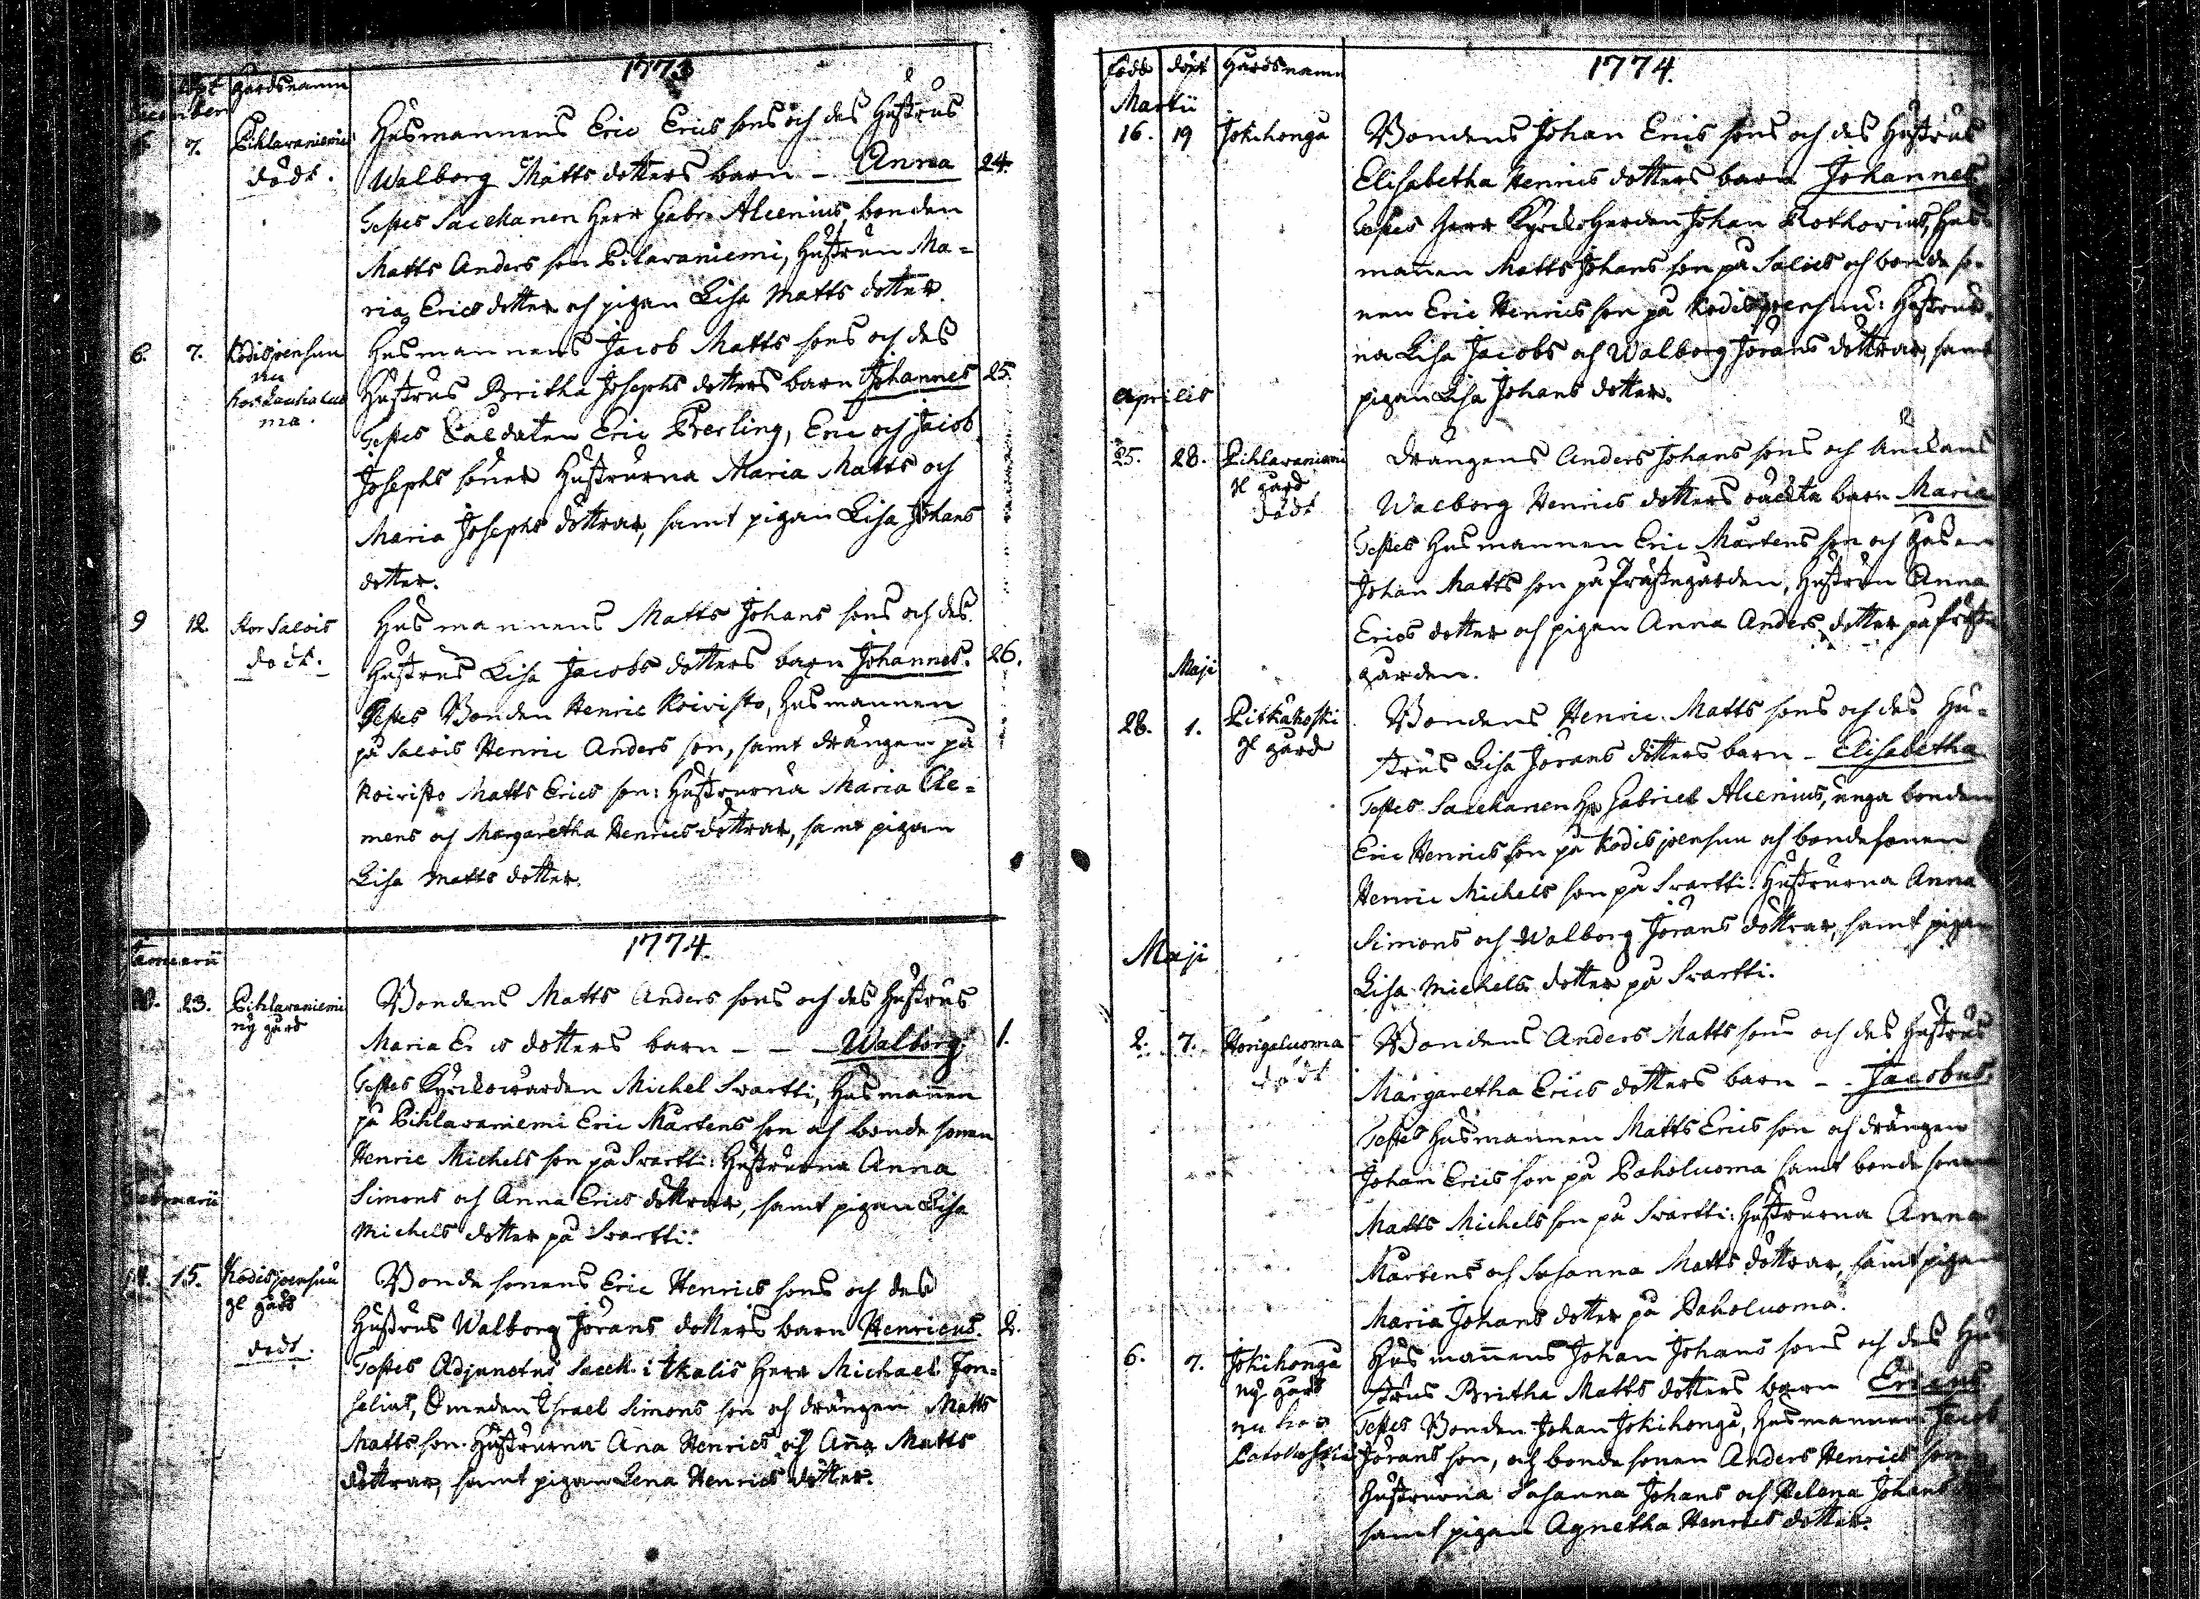 1773
döpt Gårdsnamn
December
6. 7. Pihlavaniemi Husmannens Eric Erics sons och des Hustrus
dödt. Walborg Matts dotters barn - Anna 24.
Testes Sacellanen Herr Gabr. Alcenius, bonden
Matts Anders son Pilavaniemi, Hustrun Ma-
ria Erics dotter och pigan Lisa Matts dotter.
6. 7. Kodisjoensuu Husmannens Jacob Matts sons och des
nu
Hustrus Britha Josephs dotters barn Johannes 25.
ma.
Testes Saldaten Eric Perling, Eric och Jacob
Josephs söner Hustrurna Maria Matts och
Maria Josephs döttrar, samt pigan Lisa Johans
dotter.
9 12. Kor Salois Husmannens Matts Johans sons och des
dödt. Hustrus Lisa Jacobs dotters barn Johannes. 26.
Testes Bonden Henric Koivisto, Husmannen
på Salois Henric Anders son, samt drängen på
Koivisto Matts Erics son: Hustrurna Maria Cle-
mens och Margaretha Henrics döttrar, samt pigan
Lisa Matts dotter.
1774.
Januarii
23. Pihlavaniemi Bondens Matts Anders sons och des Hustrus
ny gård
Maria Erics dotters barn - - Walborg. 1.
Testes Kyrckovärden Michel Svartti, Husmannen
på Pihlavaniemi Eric Mårtens son och bonde sonen
Henric Michels son på Svartti: Hustrurna Anna
Simons och Anna Erics döttrar, samt pigan Lisa
Februarii
Michels dotter på Svartti.
14. 15. Kodisjoensuu Bonde sonens Eric Henrics sons och des
gl gård
Hustrus Walborg Jörans dotters barn Henricus. 2.
dödt.
Testes Adjunctus Sacell. i Ikalis Herr Michael Fon-
selius, Israel Simons son och drängen Matts
Matts son. Hustrurna Ana Henrics och Anna Matts
döttrar, samt pigan Lena Henrics dotter.
1774.
född döpt Gårdsnamn
Martii
16. 19 Jokihonga Bondens Johan Erics sons och des Hustrus
Elisabetha Henrics dotters barn Johannes
Testes Herr Kyrckoherden Johan Rothovius, Hus-
mannen Matts Johans son på Salois och bonde so-
nen Eric Henrics son på Kodisjoensuu: Hustrur-
na Lisa Jacobs och Walborg Jörans döttrar, samt
Aprilis
pigan Lisa Johans dotter.
25. 28. Pihlavaniemi Drängens Anders Johans sons och
gl gård
Walborg Henrics dotters oäckta barn Maria
dödt
Testes Husmannen Eric Mårtens son och
Johan Matts son på Prästegården, Hustrun Anna
Erics dotter och pigan Anna Anders dotter på Präste
gården.
Maji
28. 1. Pitkäkoski Bondens Henric Matts sons och des Hu-
gl gård
strus Lisa Jörans dotters barn - Elisabetha
Testes Sacellanen Hr Gabriel Alcenius, unga bonden
Eric Henrics son på Kodisjoensuu och bondesonen
Henric Michels son på Svartti: Hustrurna Anna
Simons och Walborg Jörans döttrar, samt pigan
Maji
Lisa Michels dotter på Svartti.
2. 7. Hongaluoma Bondens Anders Matts sons och des Hustrus
dödt
Margaretha Erics dotters barn - - Jacobus.
Testes Husmannen Matts Erics son och drängen
Johan Erics son på Paholuoma samt bonde sonen
Matts Michels son på Svartti: Hustrurna Anna
Mårtens och Susanna Matts döttrar, samt pigan
Maria Johans dotter på Paholuoma.
6. 7. Jokihonga Husmannens Johan Johans sons och des Hu-
ny gård
strus Britha Matts dotters barn Ericus
nu hos
Testes Bonden Johan Jokihonga, Husmannen Jacob
Jörans son, och bonde sonen Anders Henrics son
Hustrurna Susanna Johans och Helena Johans
samt pigan Agnetha Henrics dotter.